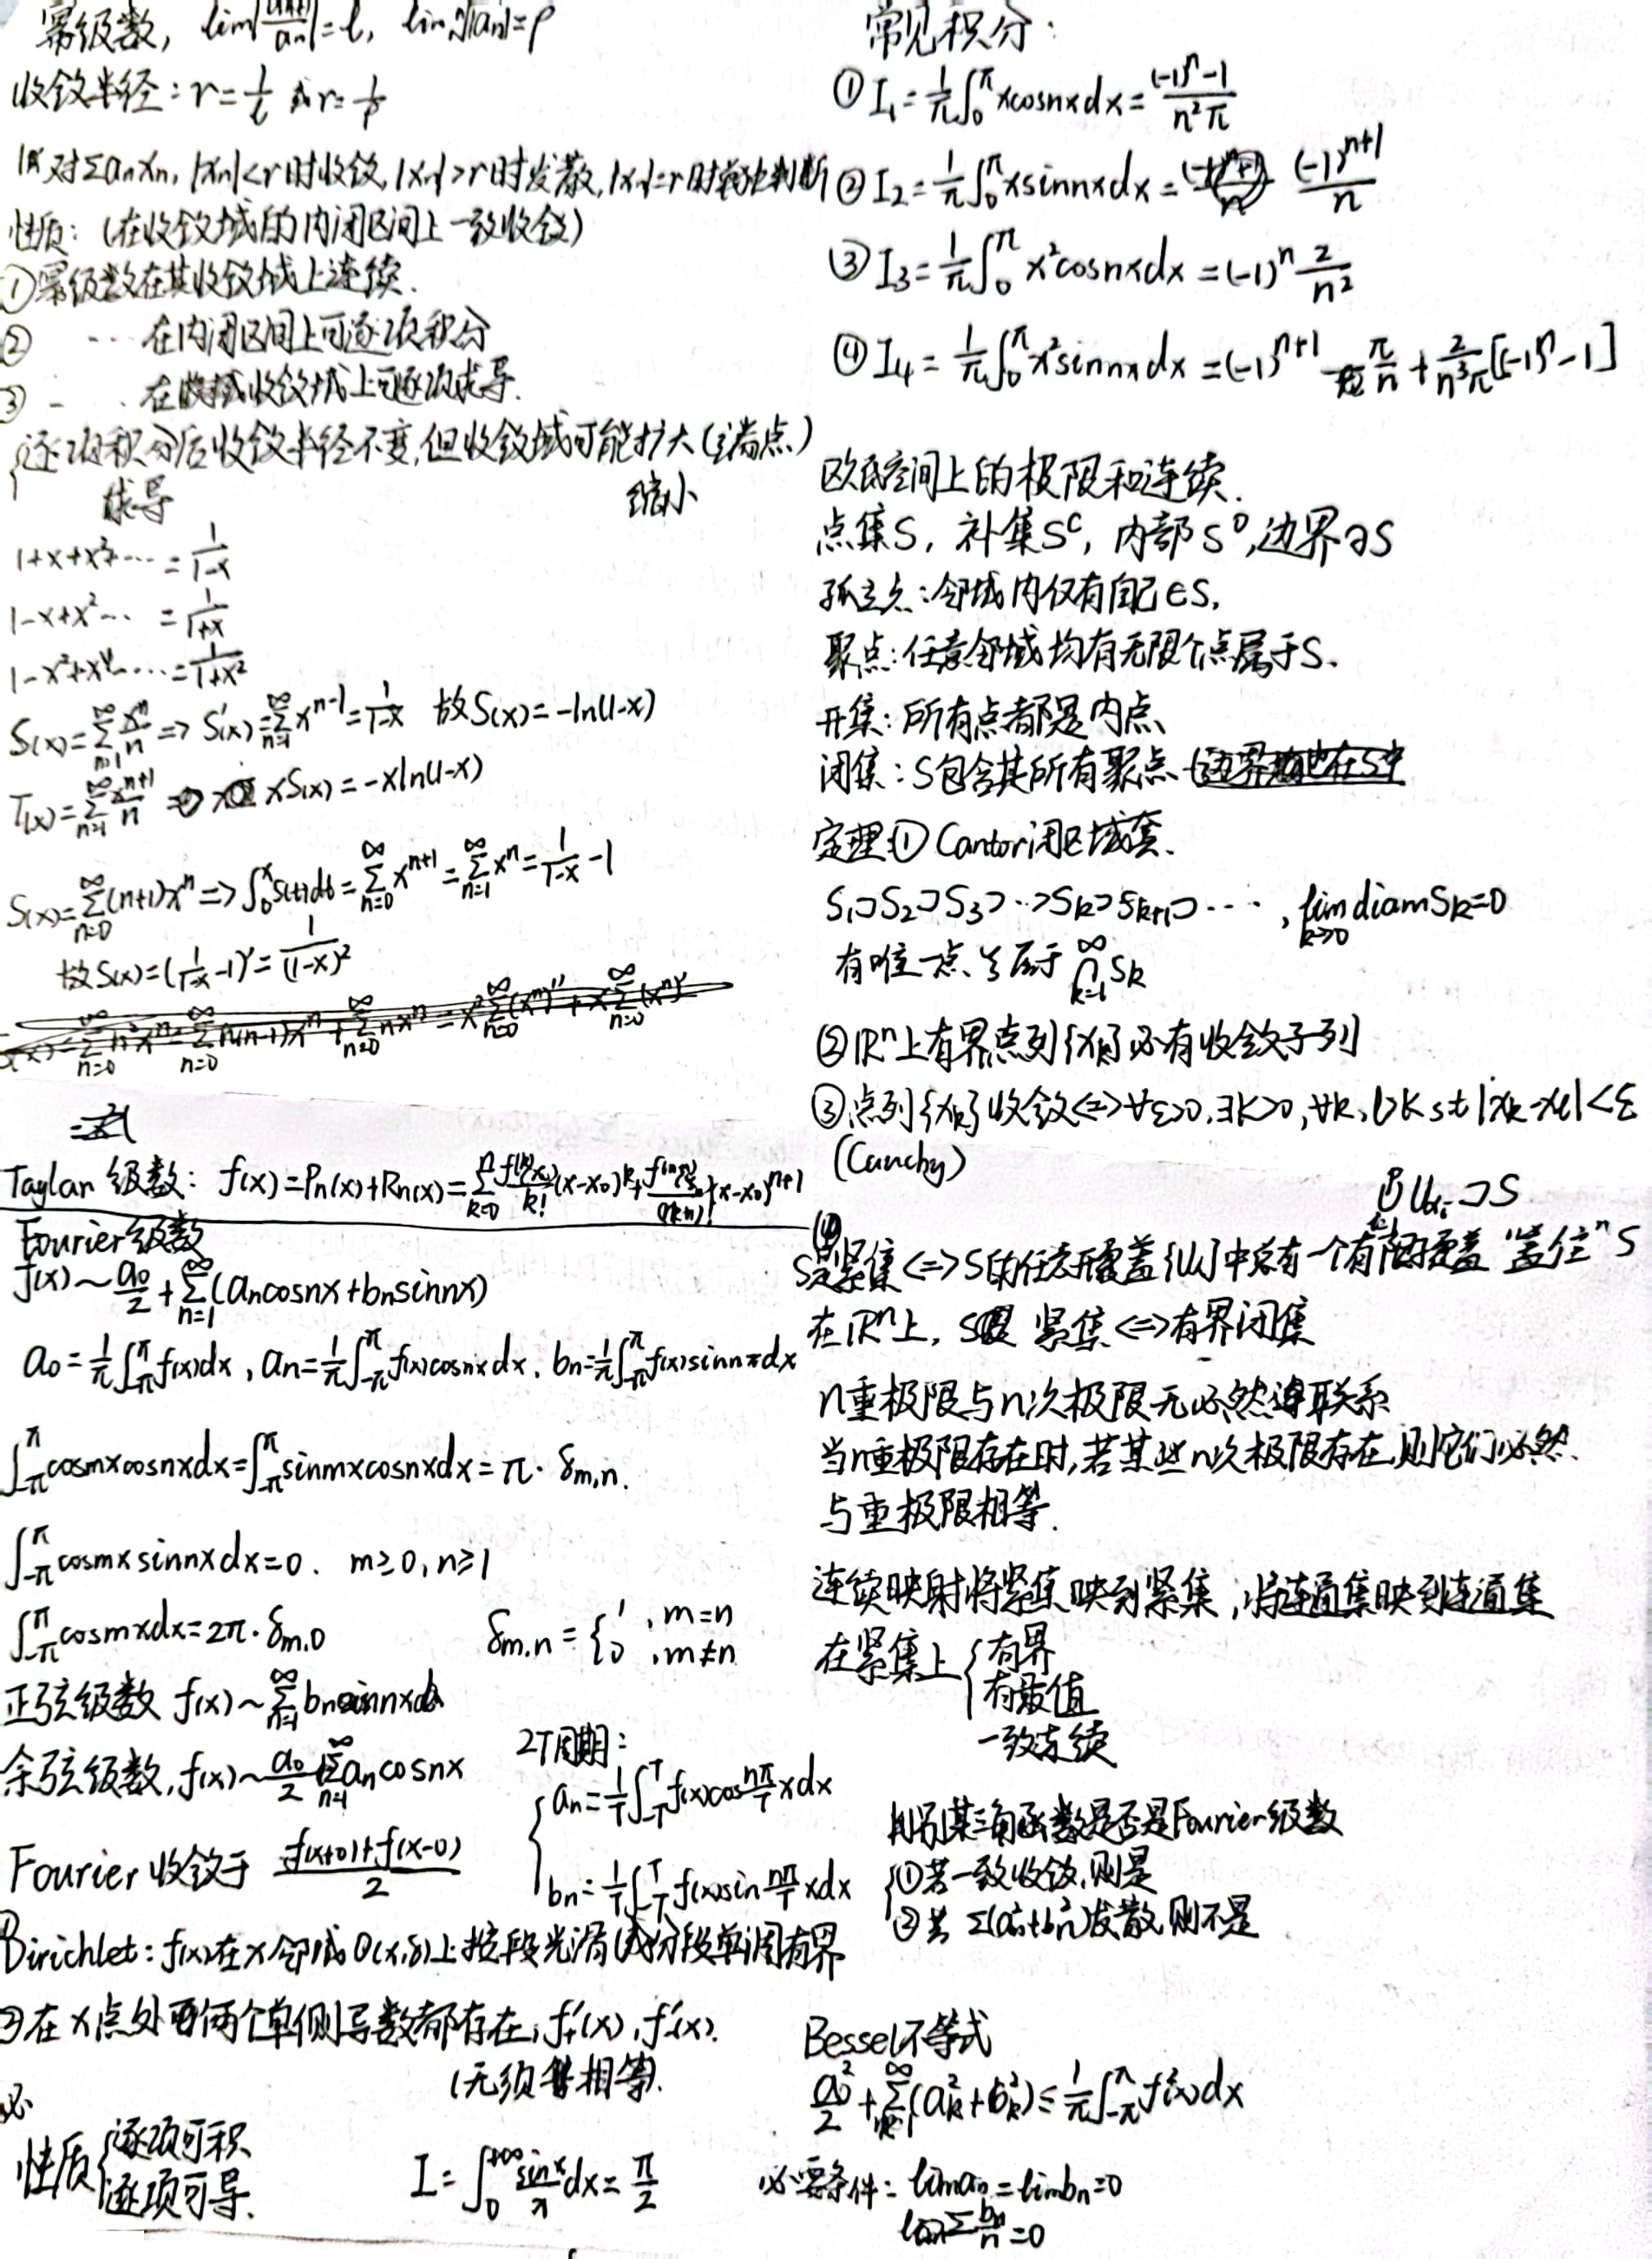 幂级数, lim|aₙ₊₁/aₙ|=l, lim ⁿ√|aₙ|=ρ
收敛半径: r=1/l 或 r=1/ρ
对Σaₙxₙ, |xₙ|<r时收敛, |xₙ|>r时发散, |xₙ|=r时单独判断
性质: (在收敛域的内闭区间上一致收敛)
①幂级数在其收敛域上连续.
② … 在内闭区间上可逐项积分
③ - … 在收敛域上可逐项求导.
{逐项积分后收敛半径不变,但收敛域可能扩大(端点)
求导 缩小
1+x+x²+⋯ = 1/(1-x)
1-x+x²-⋯ = 1/(1+x)
1-x²+x⁴-⋯ = 1/(1+x²)
S(x)=Σ_{n=1}^∞ xⁿ/n => S'(x)=Σ_{n=1}^∞ xⁿ⁻¹=1/(1-x) 故S(x)=-ln(1-x)
T(x)=Σ_{n=1}^∞ xⁿ⁺¹/n => xS(x)=-xln(1-x)
S(x)=Σ_{n=0}^∞ (n+1)xⁿ => ∫₀ˣS(t)dt=Σ_{n=0}^∞ xⁿ⁺¹=Σ_{n=1}^∞ xⁿ=1/(1-x)-1
故S(x)=(1/(1-x)-1)'=1/(1-x)²
Taylar 级数: f(x)=Pₙ(x)+Rₙ(x)=Σ_{k=0}^n f⁽ᵏ⁾(x₀)/k! (x-x₀)ᵏ+ (x-x₀)ⁿ⁺¹
Fourier级数
f(x)~a₀/2+Σ_{n=1}^∞(aₙcosnx+bₙsinnx)
a₀=1/π∫_{-π}^π f(x)dx, aₙ=1/π∫_{-π}^π f(x)cosnxdx, bₙ=1/π∫_{-π}^π f(x)sinnxdx
∫_{-π}^π cosmxcosnxdx=∫_{-π}^π sinmxcosnxdx=π·δm,n.
∫_{-π}^π cosmxsinnxdx=0. m≥0, n≥1
∫_{-π}^π cosmxdx=2π·δm,0
δm,n={1 ,m=n
0 ,m≠n
正弦级数 f(x)~Σ_{n=1}^∞ bₙsinnx
余弦级数, f(x)~a₀/2+Σ_{n=1}^∞ aₙcosnx
2T周期:
{aₙ=1/T∫_{-T}^T f(x)cos(nπ/T)xdx
bₙ=1/T∫_{-T}^T f(x)sin(nπ/T)xdx
Fourier收敛于 (f(x+0)+f(x-0))/2
①Dirichlet: f(x)在x邻域O(x,δ)上按段光滑(或分段单调有界
②在x点处两个单侧导数都存在, f'₊(x), f'₋(x).
(无须相等).
性质{逐项可积
逐项可导.
I=∫₀^{+∞} sinx/x dx=π/2
常见积分:
①I₁=1/π∫₀^π xcosnxdx=((-1)ⁿ-1)/(n²π)
②I₂=1/π∫₀^π xsinnxdx= (-1)ⁿ⁺¹/n
③I₃=1/π∫₀^π x²cosnxdx=(-1)ⁿ 2/n²
④I₄=1/π∫₀^π x²sinnxdx=(-1)ⁿ⁺¹ π/n+2/(n³π)[(-1)ⁿ-1]
欧氏空间上的极限和连续.
点集S, 补集Sᶜ, 内部S⁰, 边界∂S
孤立点:邻域内仅有自己∈S,
聚点:任意邻域均有无限个点属于S.
开集: 所有点都是内点
闭集: S包含其所有聚点
定理:①Cantor闭区域套.
S₁⊃S₂⊃S₃⊃⋯⊃Sₖ⊃Sₖ₊₁⊃⋯, lim_{k→0} diamSₖ=0
有唯一点ξ属于 ∩_{k=1}^∞ Sₖ
②ℝⁿ上有界点列{xₖ}必有收敛子列
③点列{xₖ}收敛<=>∀ε>0, ∃K>0, ∀k, l>K st |xₖ-xₗ|<ε
(Cauchy)
Uαᵢ⊃S
④
S是紧集<=>S的任意开覆盖{Uα}中总有一个有限开覆盖 "盖住" S
在ℝⁿ上, S是 紧集<=>有界闭集
n重极限与n次极限无必然联系
当n重极限存在时,若某些n次极限存在,则它们必然
与重极限相等.
连续映射将紧集映到紧集, 将连通集映到连通集
在紧集上{有界
有最值
一致连续
判别某三角函数是否是Fourier级数
{①若一致收敛,则是
②若 Σ(aₙ²+bₙ²)发散,则不是
Bessel不等式
a₀²/2+Σ_{k=1}^∞(aₖ²+bₖ²)≤1/π∫_{-π}^π f²(x)dx
必要条件: limaₙ=limbₙ=0
Σ bₙ/n=0